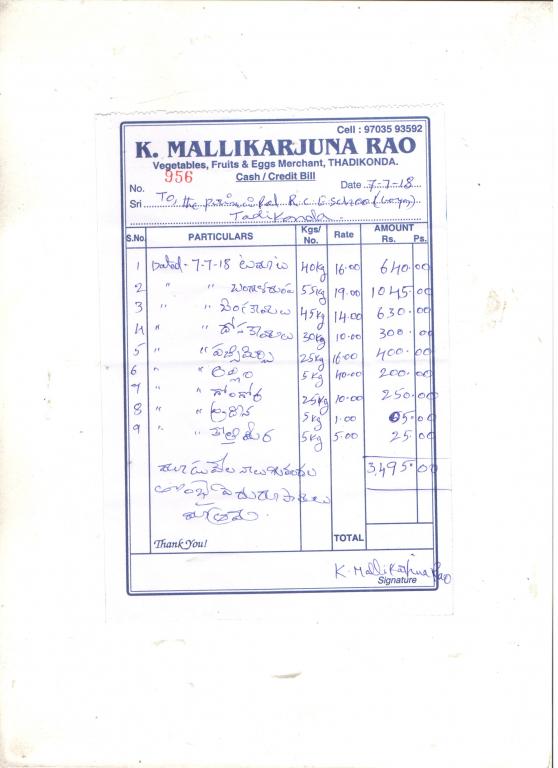 Cell : 97035 93592
K. MALLIKARJUNA RAO
Vegetables, Fruits & Eggs Merchant, THADIKONDA.
Cash / Credit Bill
No. 956 Date 7-7-18
Sri To, the principal R.C.E. School (Boys)
Tadikonda
S.No. PARTICULARS Kgs/No. Rate AMOUNT Rs. Ps.
1 Dated - 7-7-18 టమాటలు 40kg 16.00 640.00
2 " " 55kg 19.00 1045.00
3 " " వంకాయలు 45kg 14.00 630.00
4 " " దోసకాయలు 30kg 10.00 300.00
5 " " పచ్చిమిర్చి 25kg 16.00 400.00
6 " " అల్లం 5kg 40.00 200.00
7 " " గోంగూర 25kg 10.00 250.00
8 " " 5kg 1.00 05.00
9 " " కొత్తిమీర 5kg 5.00 25.00
మూడు వేల నాలుగు వందల 3,495.00
తొంభై ఐదు రూపాయలు
మాత్రమే.
Thank You! TOTAL
K. Mallikarjuna Rao
Signature